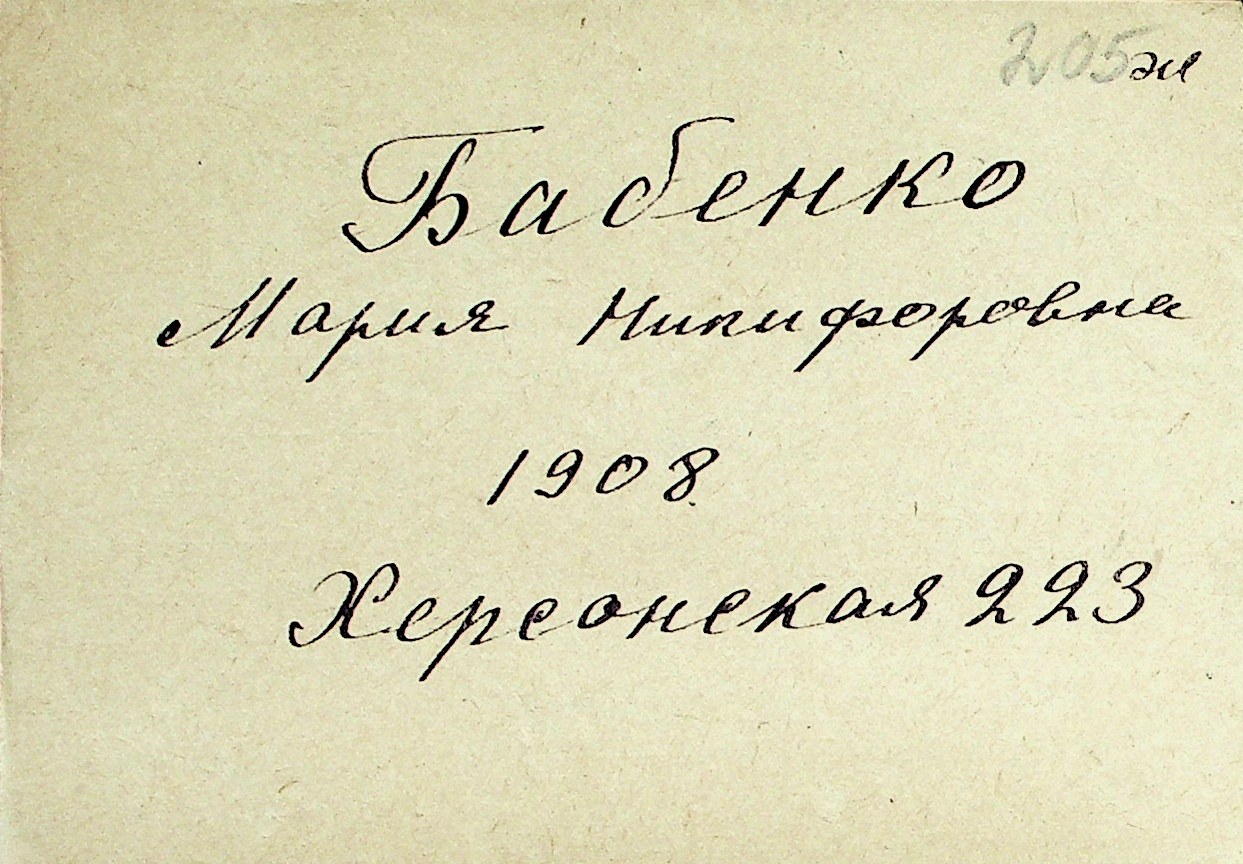 205 ж
Бабенко
Мария Никифоровна
1908
Херсонская 223